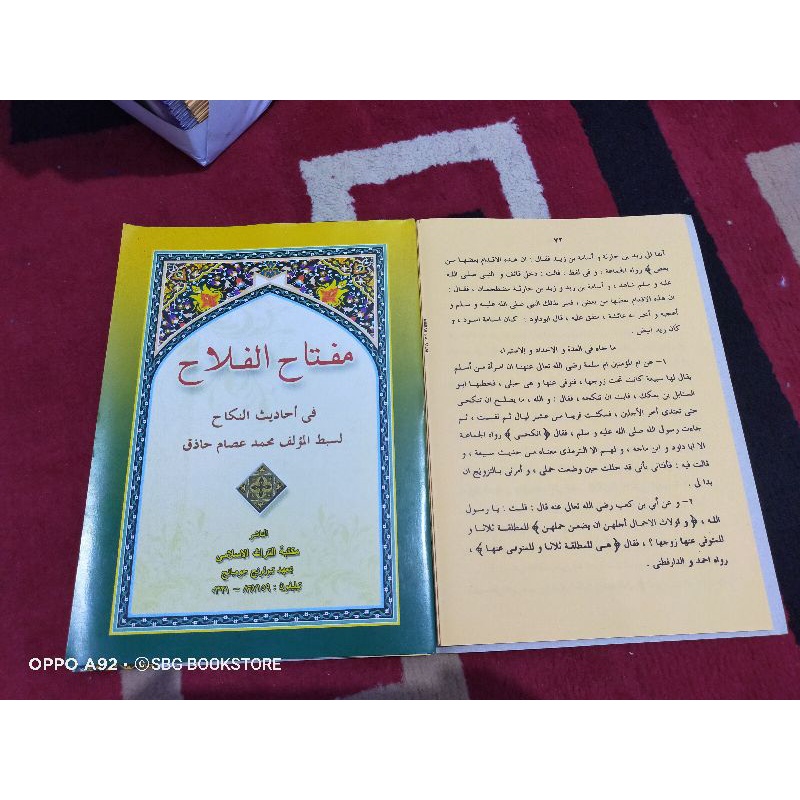 مفتاح الفلاح
فى أحاديث النكاح
لسبط المؤلف محمد عصام حاذق
الناشر
مكتبة التراث الإسلامي
بمعهد تبوئرنج جومبانج
٧٢
رواه الجماعة ، و فى لفظ : قالت : دخل قائف و النبى صلى الله
عليه و سلم شاهد ، و أسامة بن زيد و زيد بن حارثة مضطجعان ، فقال :
ان هذه الاقدام بعضها من بعض ، فسر بذلك النبى صلى الله عليه و سلم و
أعجبه و أخبر به عائشة ، متفق عليه ، قال ابوداود : كان اسامة اسود ، و
كان زيد ابيض .
ما جاء فى العدة و الاحداد و الاستبراء
١- عن ام المؤمنين ام سلمة رضى الله تعالى عنهنا ان امرأة من أسلم
يقال لها سبيعة كانت تحت زوجها ، فتوفى عنها و هى حبلى ، فخطبها ابو
السنابل بن بعكك ، فابت ان تنكحه ، فقال : و الله ، ما يصلح ان تنكحى
حتى تعتدى أخر الأجلين ، فمكثت قريبا من عشر ليال ثم نفست ، ثم
جاءت رسول الله صلى الله عليه و سلم ، فقال ﴿ انكحى ﴾ رواه الجماعة
الا ابا داود و ابن ماجه ، و لهم الا الترمذى معناه من حديث سبيعة ، و
قالت فيه : فأفتانى بأنى قد حللت حين وضعت حملى ، و أمرنى بالتزويج ان
بدا لى .
٢- و عن أبي بن كعب رضى الله تعالى عنه قال : قلت : يا رسول
الله ، ﴿ و اولات الاحمال أجلهن ان يضعن حملهن ﴾ للمطلقة ثلاثا و
للمتوفى عنها زوجها ؟ ، فقال ﴿ هى للمطلقة ثلاثا و للمتوفى عنها ﴾ ،
رواه احمد و الدارقطنى .
OPPO A92 · ©SBG BOOKSTORE